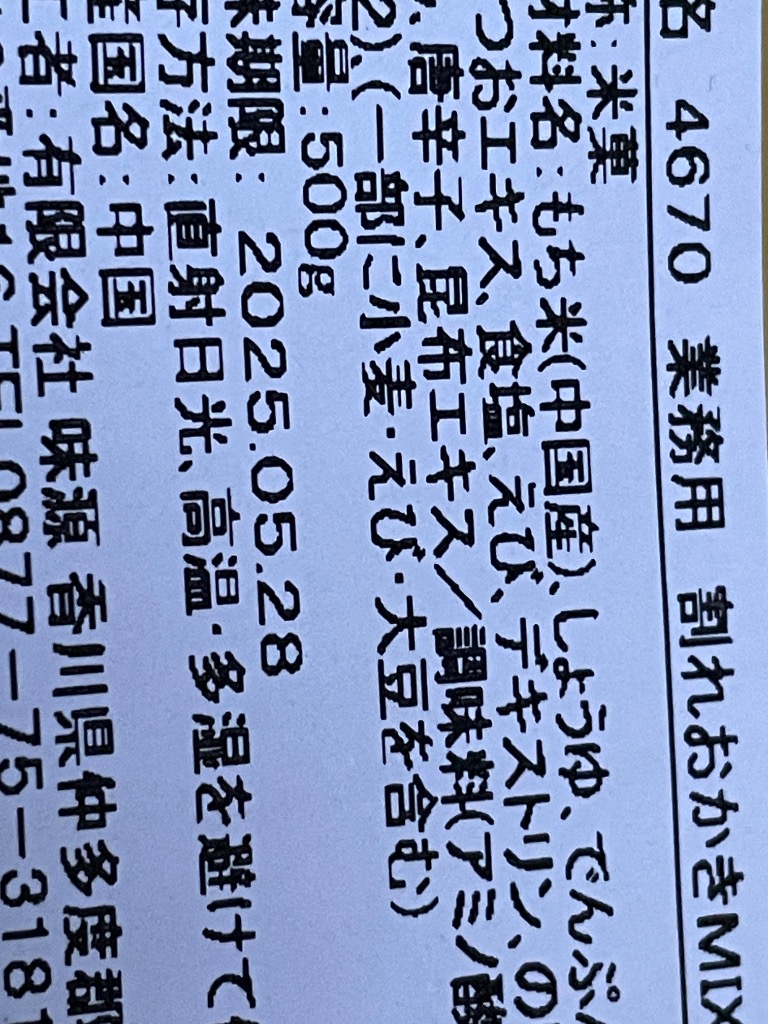 名 4670 業務用 割れおかきMIX
称:米菓
材料名:もち米(中国産)、しょうゆ、でんぷん
つおエキス、食塩、えび、デキストリン、の
、唐辛子、昆布エキス/調味料(アミノ酸
2)、(一部に小麦・えび・大豆を含む)
容量:500g
味期限: 2025.05.28
存方法:直射日光、高温・多湿を避けて
産国名:中国
者:有限会社 味源 香川県仲多度郡
TEL0877-75-3181